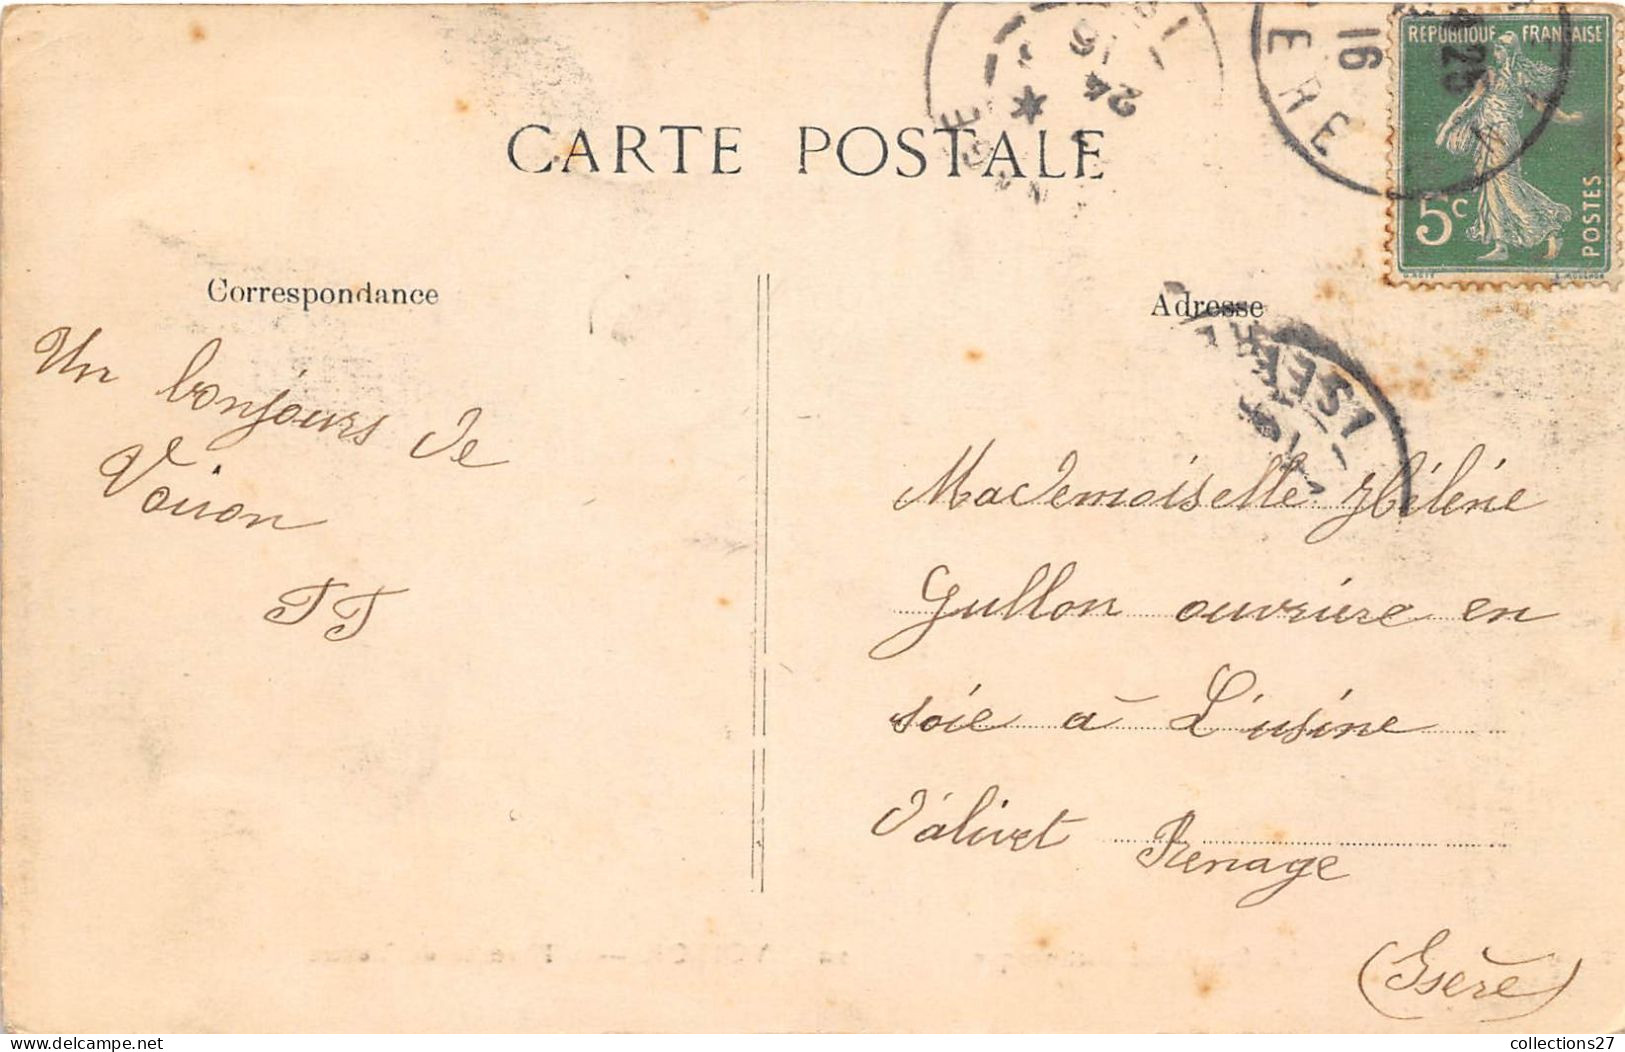 RÉPUBLIQUE FRANÇAISE
5c
POSTES
16
ERE
24
16
CARTE POSTALE
Correspondance
Adresse
ISERE
Un bonjours de
Voiron
TT
Mademoiselle Hélène
Gullon ouvrière en
soie à L'usine
d'alivet Renage
(Isère)
collections27